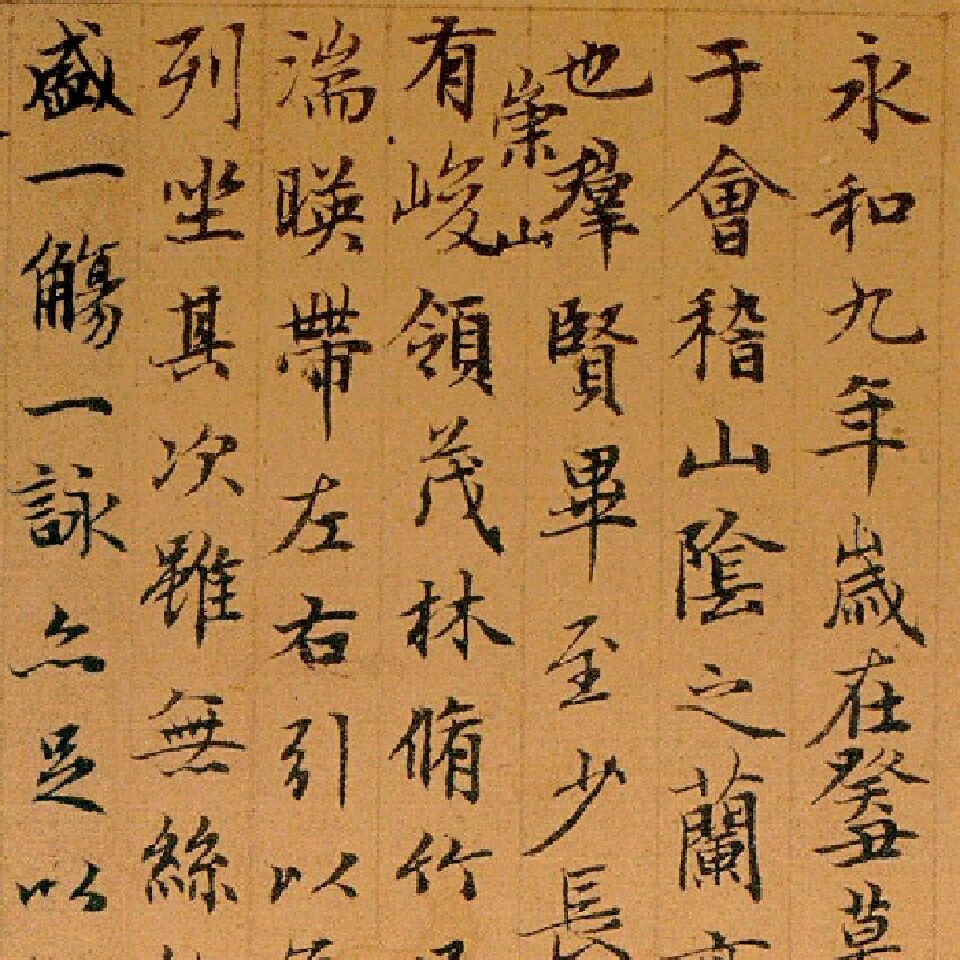 永和九年歲在癸丑暮
于會稽山陰之蘭亭
也羣賢畢至少長
有崇山峻領茂林脩竹
湍暎帶左右引以
列坐其次雖無絲
盛一觴一詠亦足以